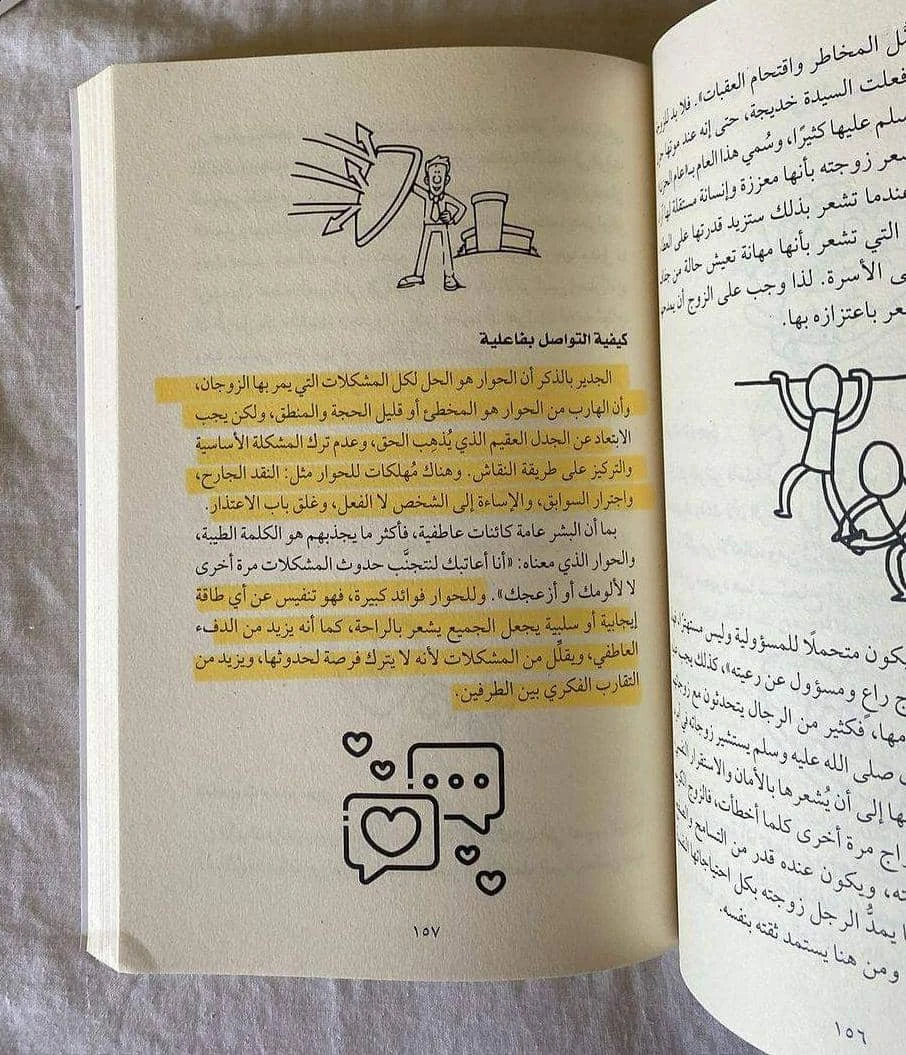 ل المخاطر واقتحام العقبات». فلا بد للزوج
فعلت السيدة خديجة، حتى إنه عند موتها
سلم عليها كثيرًا، وسُمي هذا العام بـ«عام
عر زوجته بأنها معززة وإنسانة مستقلة لها
عندما تشعر بذلك ستزيد قدرتها على
التي تشعر بأنها مهانة تعيش حالة من
ى الأسرة. لذا وجب على الزوج أن
عر باعتزازه بها.
كون متحملًا للمسؤولية وليس
ج راعٍ ومسؤول عن رعيته»، كذلك يجب
مها، فكثير من الرجال يتحدثون مع
صلى الله عليه وسلم يستشير زوجاته في
ها إلى أن يُشعرها بالأمان والاستقرار
راج مرة أخرى كلما أخطأت، فالزوج
ته، ويكون عنده قدر من التسامح
ا يمدُّ الرجل زوجته بكل احتياجاتها
ومن هنا يستمد ثقته بنفسه.
١٥٦
كيفية التواصل بفاعلية
الجدير بالذكر أن الحوار هو الحل لكل المشكلات التي يمر بها الزوجان،
وأن الهارب من الحوار هو المخطئ أو قليل الحجة والمنطق، ولكن يجب
الابتعاد عن الجدل العقيم الذي يُذهِب الحق، وعدم ترك المشكلة الأساسية
والتركيز على طريقة النقاش. وهناك مُهلكات للحوار مثل: النقد الجارح،
واجترار السوابق، والإساءة إلى الشخص لا الفعل، وغلق باب الاعتذار.
بما أن البشر عامة كائنات عاطفية، فأكثر ما يجذبهم هو الكلمة الطيبة،
والحوار الذي معناه: «أنا أعاتبك لنتجنَّب حدوث المشكلات مرة أخرى
لا لألومك أو أزعجك». وللحوار فوائد كبيرة، فهو تنفيس عن أي طاقة
إيجابية أو سلبية يجعل الجميع يشعر بالراحة، كما أنه يزيد من الدفء
العاطفي، ويقلِّل من المشكلات لأنه لا يترك فرصة لحدوثها، ويزيد من
التقارب الفكري بين الطرفين.
١٥٧